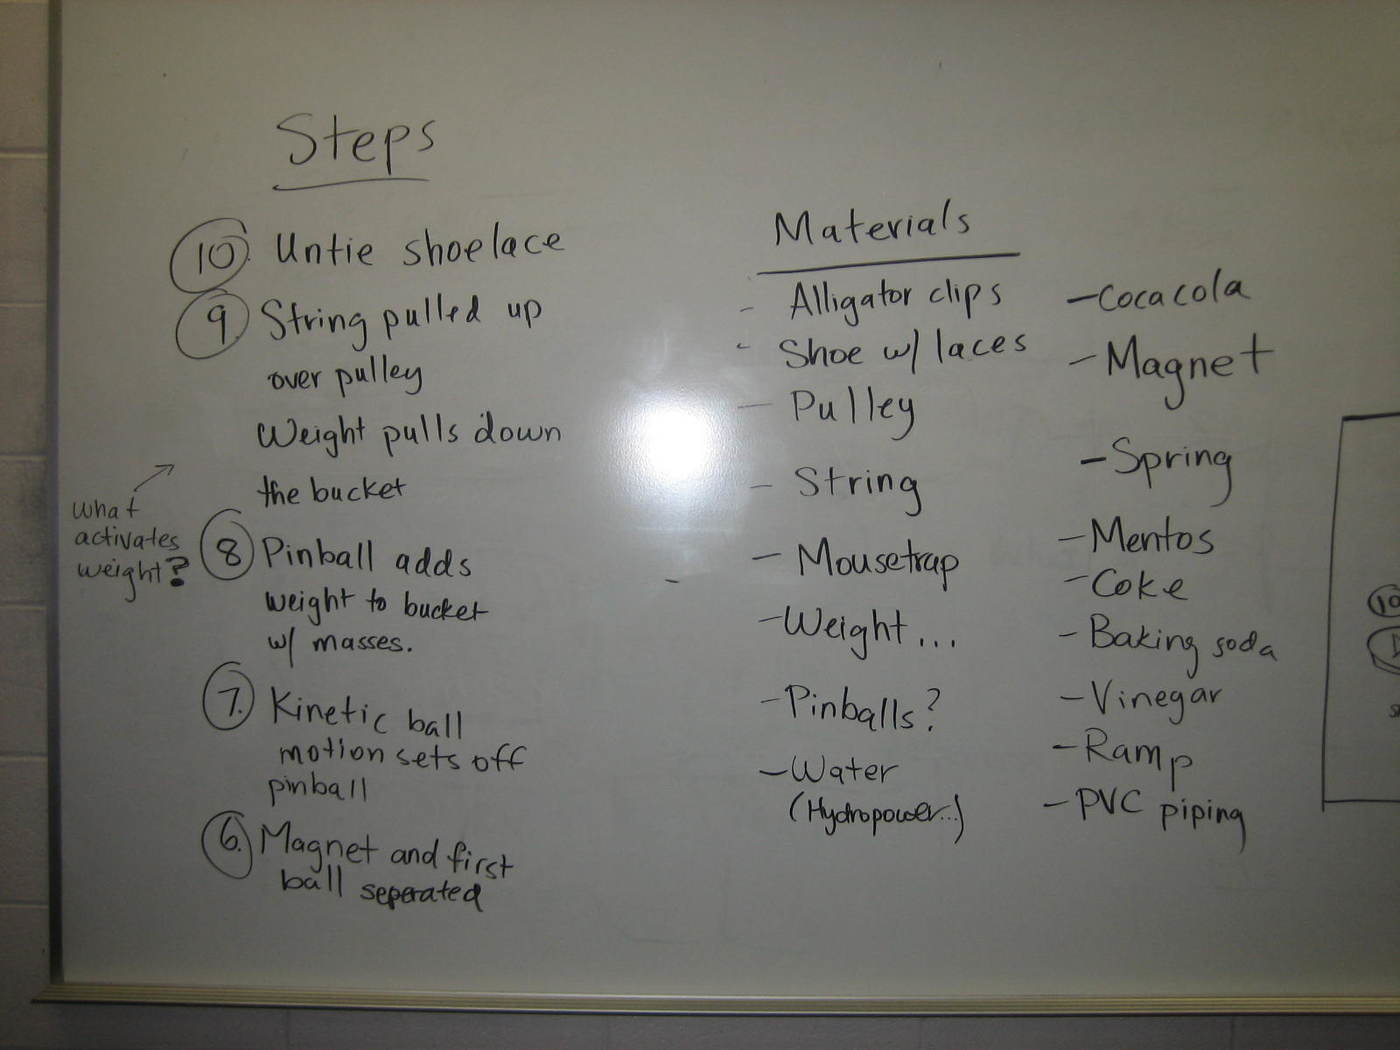 Steps
10. Untie shoelace
9. String pulled up
over pulley
Weight pulls down
the bucket
What
activates
weight?
8 Pinball adds
weight to bucket
w/ masses.
7. Kinetic ball
motion sets off
pinball
6. Magnet and first
ball seperated
Materials
- Alligator clips
- Shoe w/ laces
- Pulley
- String
- Mousetrap
- Weight...
- Pinballs?
- Water
(Hydropower...)
- Cocacola
- Magnet
- Spring
- Mentos
- Coke
- Baking soda
- Vinegar
- Ramp
- PVC piping
10